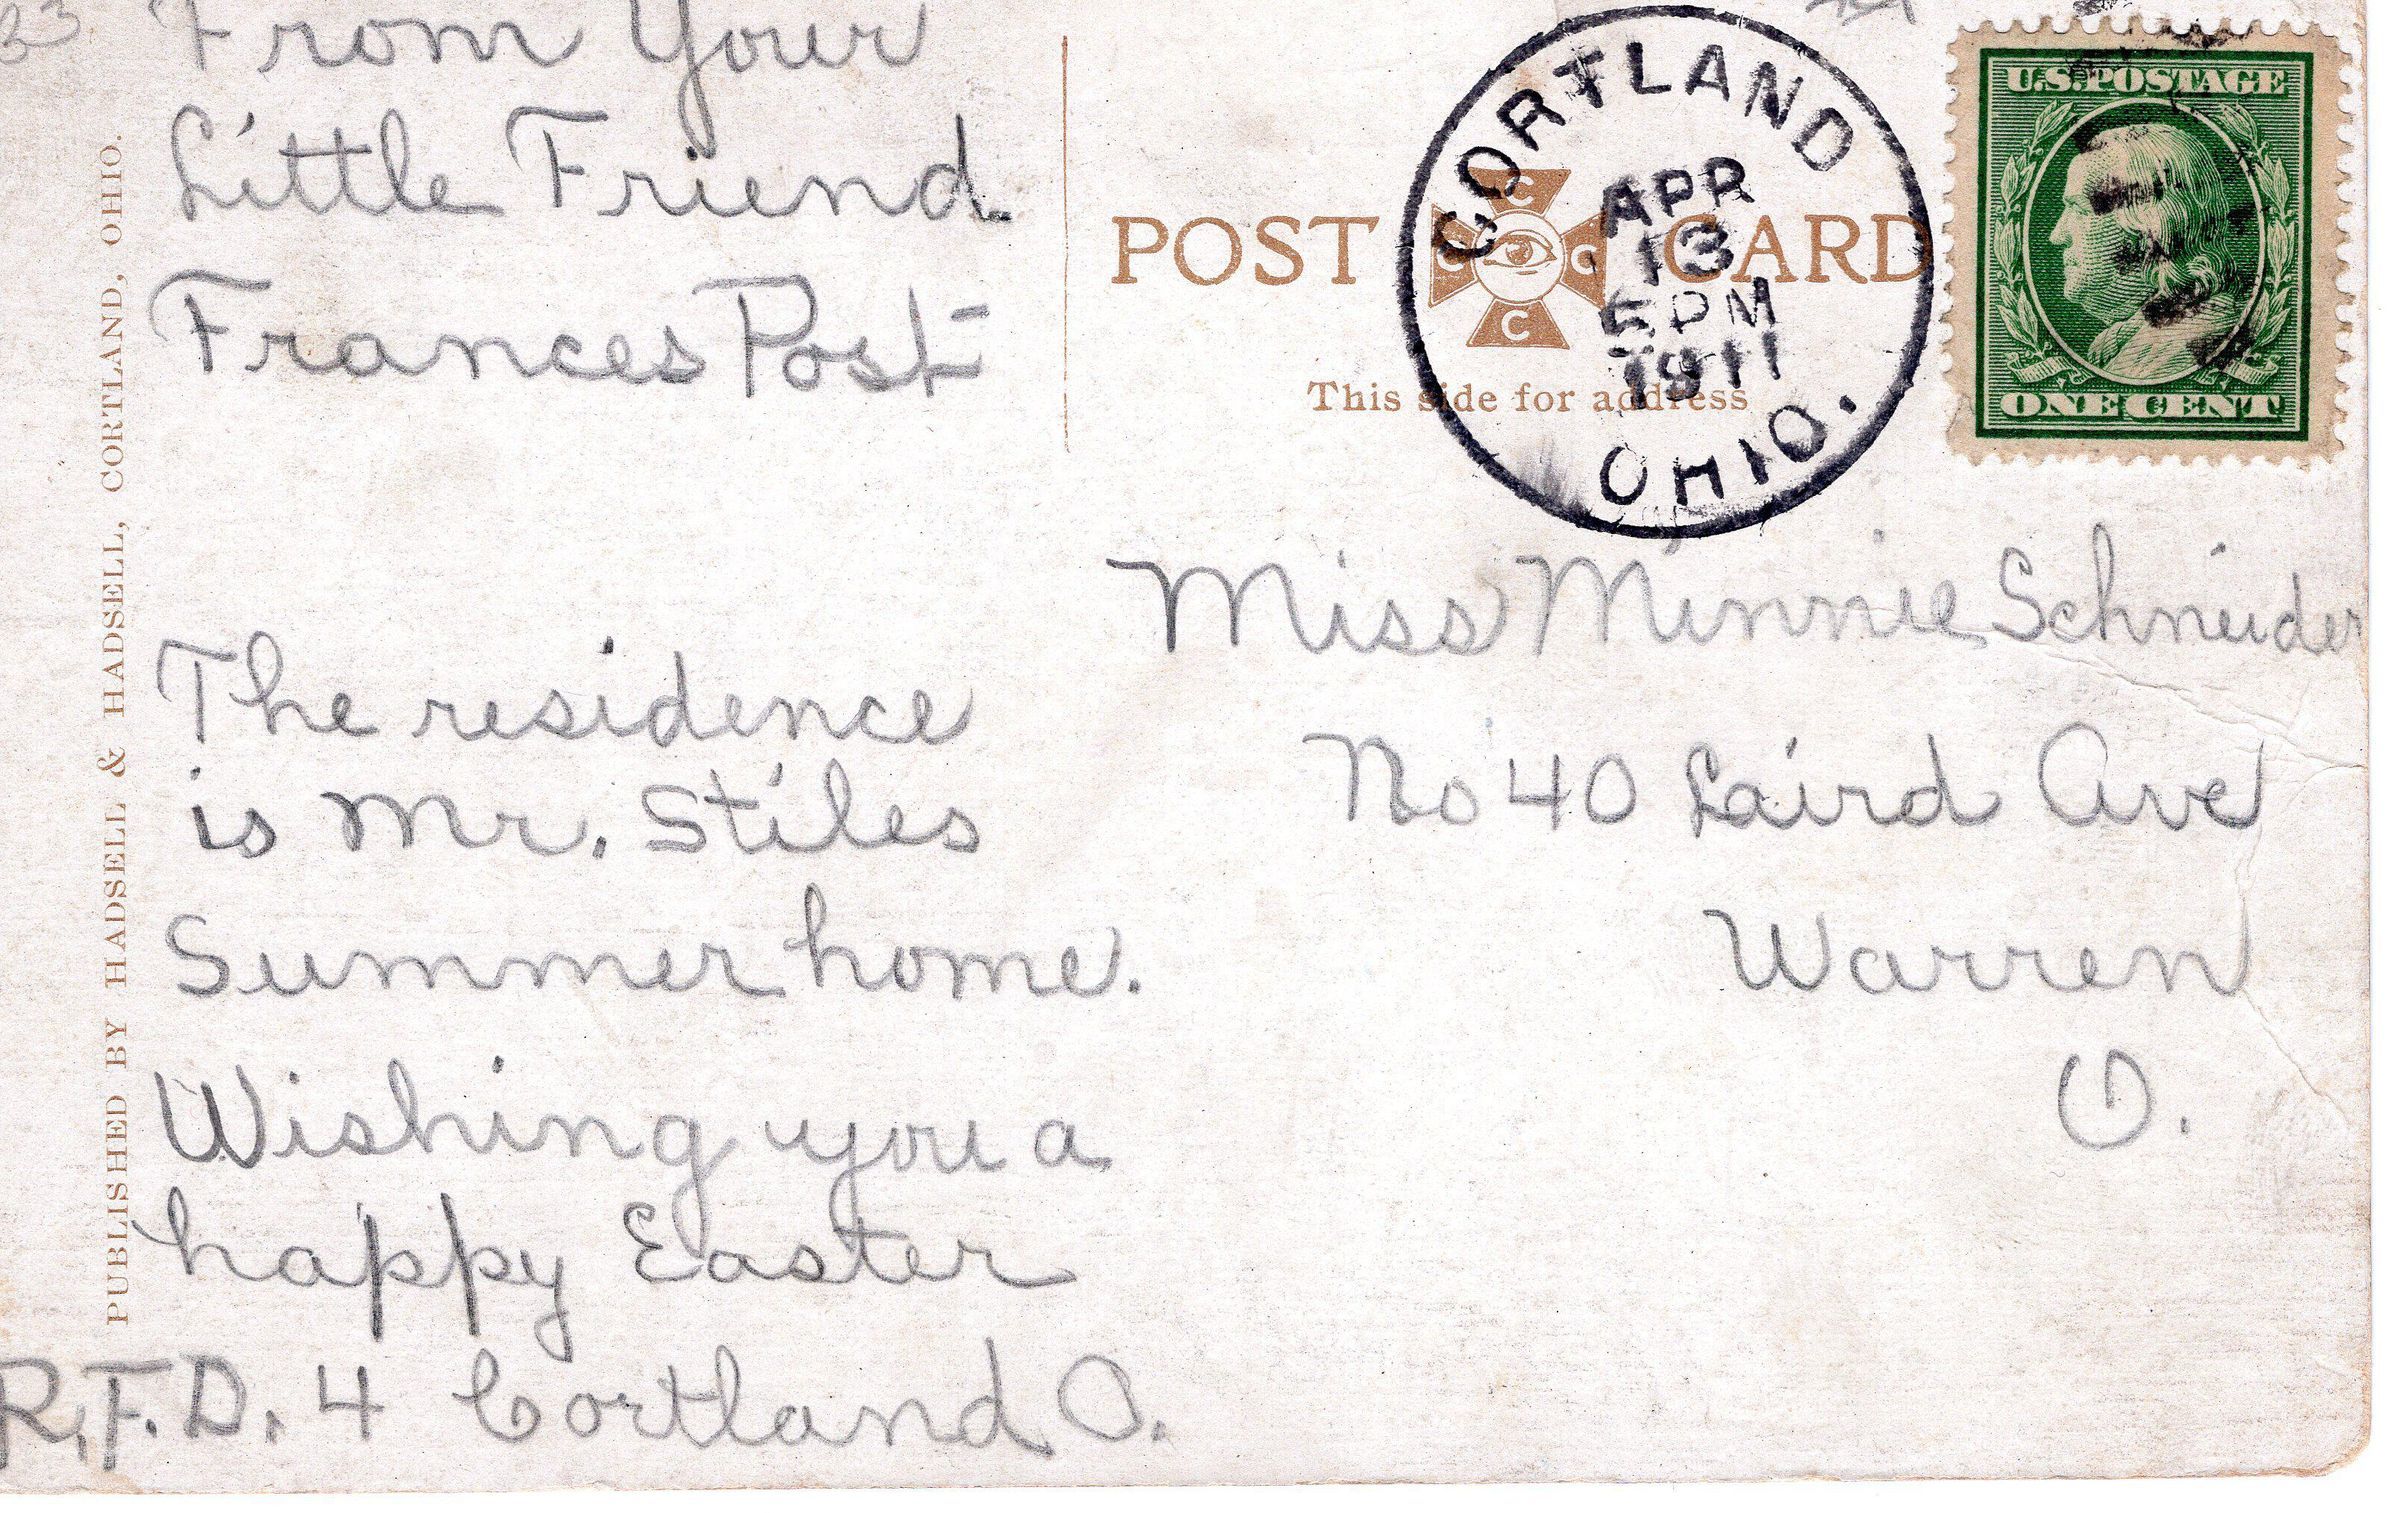 From Your
Little Friend
Frances Post
The residence
is Mr. Stiles
Summer home.
Wishing you a
happy Easter
R.F.D. 4 Cortland O.
PUBLISHED BY HADSELL & HADSELL, CORTLAND, OHIO.
POST CARD
C C C C
This side for address
CORTLAND
APR
13
5 PM
1911
OHIO.
U.S. POSTAGE
ONE CENT
Miss Minnie Schneider
No 40 Laird Ave
Warren
O.